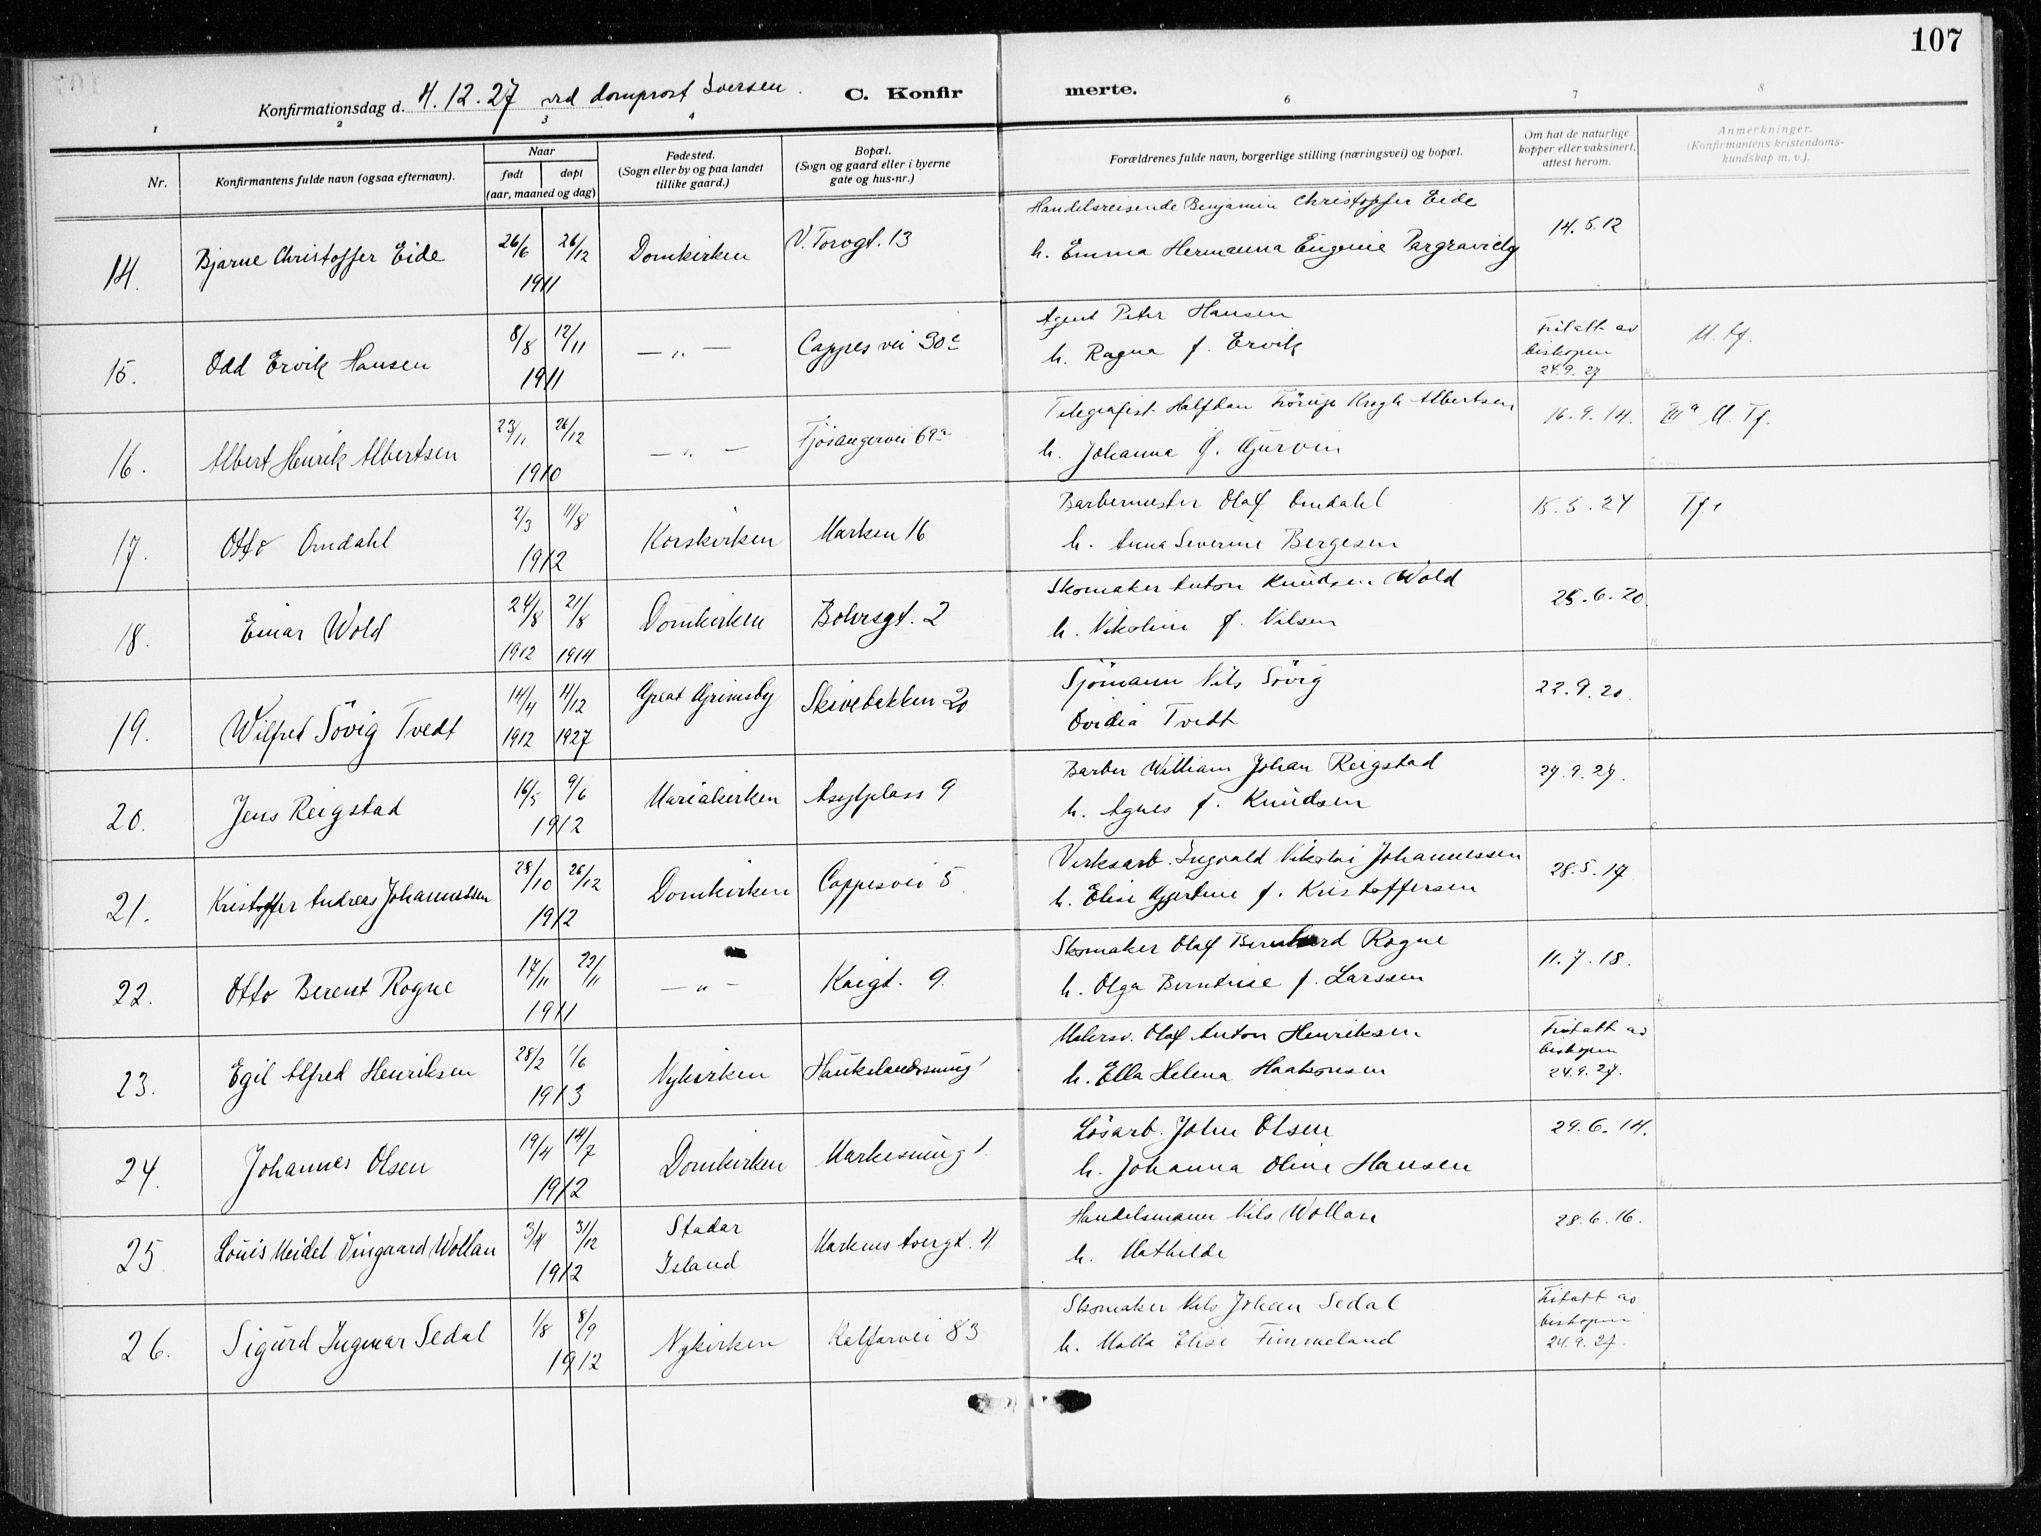 107
Konfirmationsdag d. 4.12.27 ved domprost Iversen. C. Konfirmerte.
1 2 3 4 6 7 8
Nr. Konfirmantens fulde navn (ogsaa efternavn). Naar født døpt (aar, maaned og dag) Fødested. (Sogn eller by og paa landet tillike gaard.) Bopæl. (Sogn og gaard eller i byerne gate og hus-nr.) Forældrenes fulde navn, borgerlige stilling (næringsvei) og bopæl. Om hat de naturlige kopper eller vaksinert, attest herom. Anmerkninger. (Konfirmantens kristendomskundskap m. v.).
14. Bjarne Christoffer Eide 26/6 26/12 1911 Domkirken V. Torvgt. 13 Handelsreisende Benjamin Christoffer Eide
h. Emma Hermanna Eugenie 14.5.12
15. Odd Ervik Hansen 8/8 12/11 1911 — " — Cappes vei 30c Agent Peter Hansen
h. Ragna f. Ervik Fritatt av biskopen 24.9.27 M. Tf.
16. Albert Henrik Albertsen 23/11 26/12 1910 — " — Fjösangervei 69a Telegrafist Halfdan Krogh Albertsen
h. Johanna f. Gjurvin 16.9.14. M. Tf.
17. Otto Omdahl 2/3 11/8 1912 Korskirken Marken 16 Barbermester Olaf Omdahl
h. Anna Severine Bergesen 15.5.24 Tf.
18. Einar Wold 24/8 21/8 1912 1914 Domkirken Bohrsgt. 2 Skomaker Anton Knudsen Wold
h. Nikoline f. Nilsen 25.6.20.
19. Wilfred Sövig Tvedt 14/4 4/12 1912 1927 Great Grimsby Skivebakken 20 Sjömann Nils Sövig
Ovidia Tvedt 22.9.20.
20. Jens Reigstad 16/5 9/6 1912 Mariakirken Asylplass 9 Barber William Johan Reigstad
h. Agnes f. Knudsen 27.9.27.
21. Kristoffer Andreas Johannessen 28/10 26/12 1912 Domkirken Cappesvei 5 Verksarb. Ingvald Nikolai Johannessen
h. Elise Gjertine f. Kristoffersen 28.5.17
22. Otto Berent Rogne 17/11 23/11 1911 — " — Kaigt. 9. Skomaker Olaf Bernhard Rogne
h. Olga Berntine f. Larssen 11.7.18.
23. Egil Alfred Henriksen 28/2 1/6 1913 Nykirken Haukelandssmug 1 Malersv. Olaf Anton Henriksen
h. Ella Helena Haakonsen Fritatt av biskopen 24.9.27.
24. Johannes Olsen 19/4 14/7 1912 Domkirken Markesmug 1. Lösarb. John Olsen
h. Johanna Oline Hansen 29.6.14.
25 Louis Meidel Vingaard Wollan 3/4 31/12 1912 Stadar Island Markens tvergt. 4. Handelsmann Nils Wollan
h. Mathilde 28.6.16.
26. Sigurd Ingmar Sedal 1/8 8/9 1912 Nykirken Kalfarvei 83 Skomaker Nils Johan Sedal
h. Malla Elise Fimmeland Fritatt av biskopen 24.9.27.